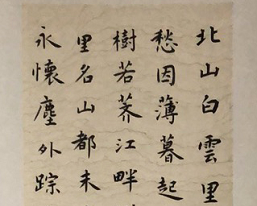 北山白雲里
愁因薄暮起
樹若薺江畔
里名山都未
永懷塵外踪